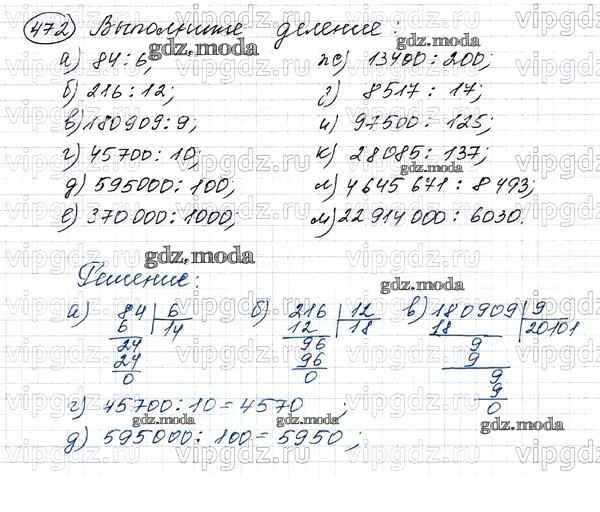 472 Выполните деление:
а) 84:6; ж) 13400:200;
б) 216:12; з) 8517:17;
в) 180909:9; и) 97500:125;
г) 45700:10; к) 28085:137;
д) 595000:100; л) 4645671:8493;
е) 370000:1000; м) 22914000:6030.
Решение:
а) 84 6 б) 216 12 в) 180909 9
6 14 12 18 18 20101
24 96 9
24 96 9
0 0 9
9
0
г) 45700:10=4570;
д) 595000:100=5950;
gdz.moda
vipgdz.ru